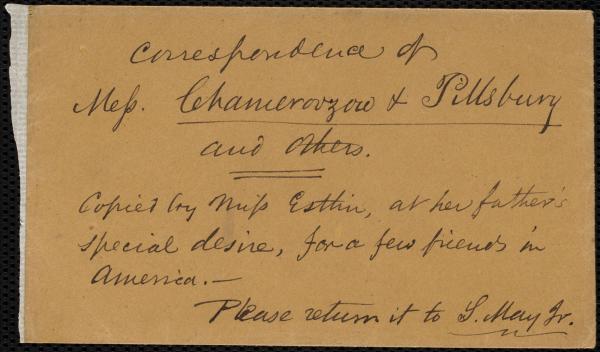 Correspondence of
Mess. Chamerovzow & Pillsbury
and others.
Copied by Miss Estlin, at her father's
special desire, for a few friends in
America.—
Please return it to S. May Jr.